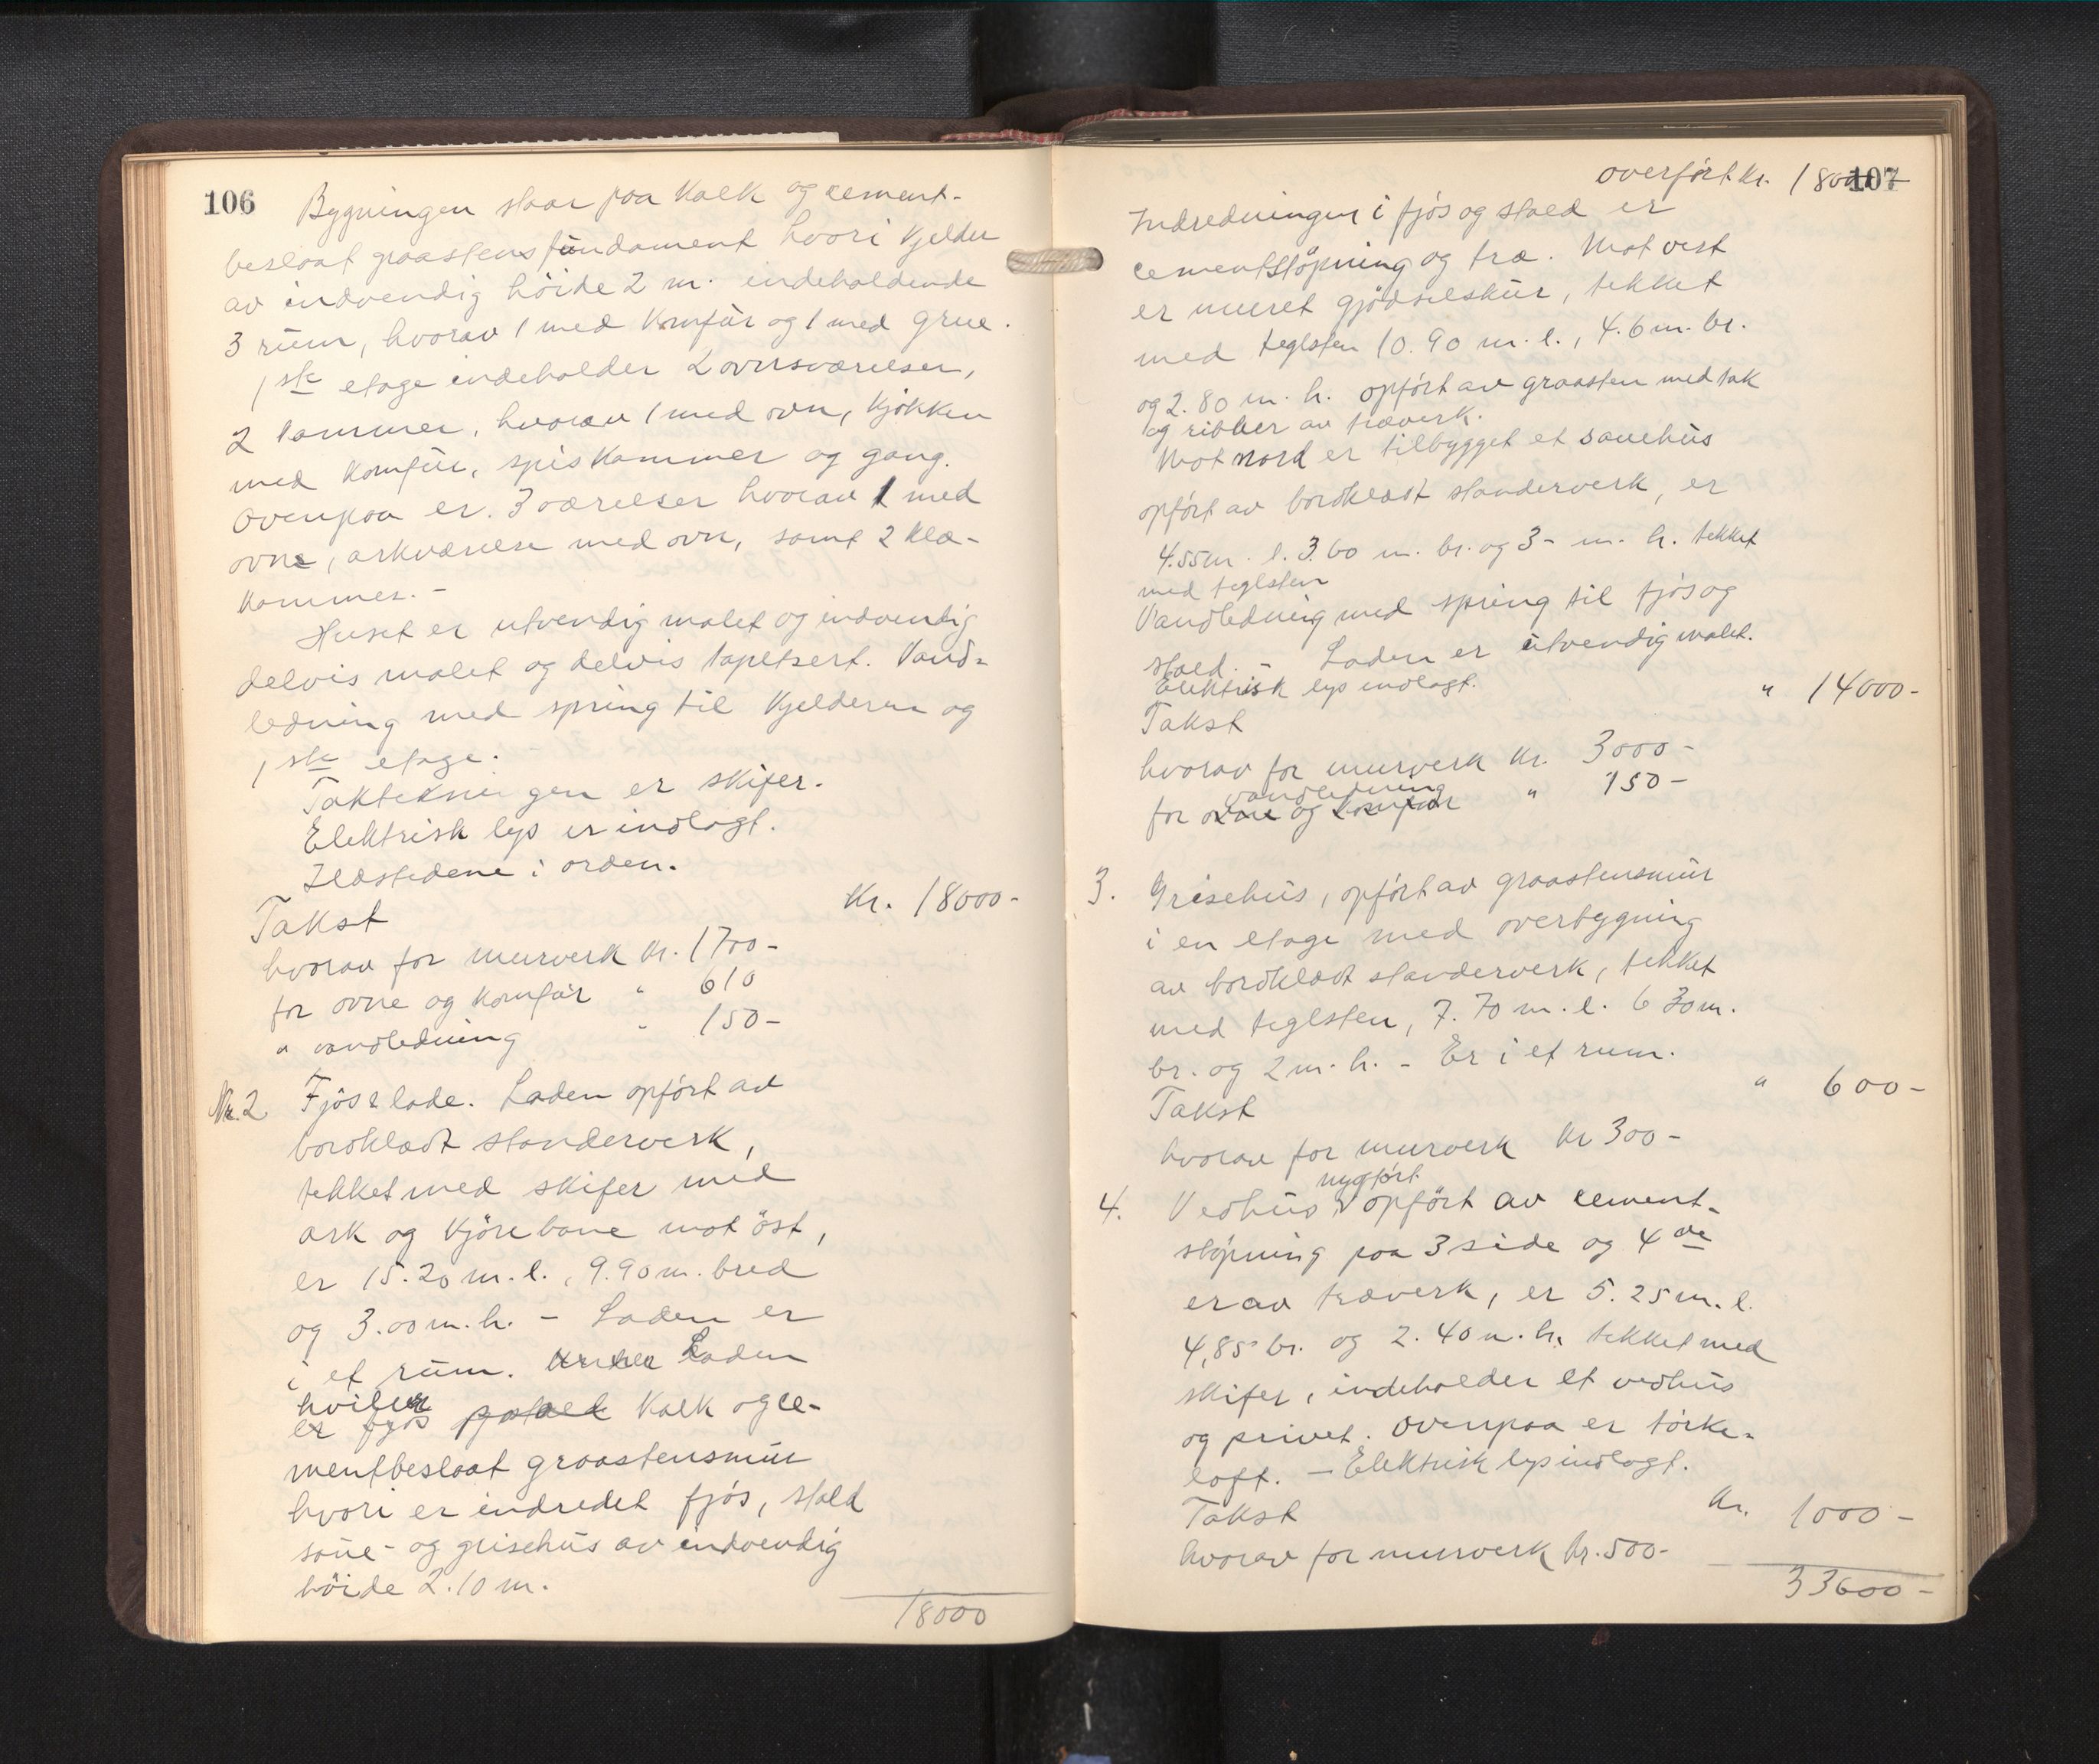 106
Bygningen staar paa Kalk og cement-
beslaat graastensfundament hvori Kjelder
av indvendig höide 2 m. indeholdende
3 rum, hvorav 1 med Komfür og 1 med grue.
1ste etage indeholder 2 ovnsværelser,
2 Kammer, hvorav 1 med ovn, Kjökken
med Komfür, spiskammer og gang.
Ovenpaa er 3 værelser hvorav 1 med
ovne, arkværelse med ovn, samt 2 Klæ-
Kammer. -
Huset er utvendig malet og indvendig
delvis malet og delvis tapetsert. Vand-
ledning med spring til Kjelderen og
1ste etage.
Taktekningen er skifer.
Elektrisk lys er indlagt.
Ildstedene i orden.
Takst Kr. 18000-
hvorav for murverk Kr. 1700-
for ovne og Komfür " 610
" vandledning " 150-
Nr. 2 Fjös & lade. Laden opfört av
bordklædt standerverk,
tekket med skifer med
ark og Kjörebane mot öst,
er 15.20 m. l., 9.90 m. bred
og 3.00 m. h. - Laden er
i et rum. Under Laden
hviler
er fjös paa Kalk og ce-
mentbeslaat graastensmür
hvori er indredet fjös, stald
saue- og grisehüs av indvendig
höide 2.10 m.
18000
107
overfört Kr. 18000-
Indredningen i fjös og stald er
cementstöpning og træ. Mot vest
er muret gjödselsküר, tekket
med teglsten 10.90 m. l., 4.6 m. br.
og 2.80 m. h. opfört av graasten med tak
og ribber av træverk.
Mot nord er tilbygget et sauehüs
opfört av bordklædt standerverk, er
4.55 m. l. 3.60 m. br. og 3- m. h. tekket
med teglsten
Vandledning med spring til fjös og
stald. - Laden er utvendig malet.
Elektrisk lys indlagt.
Takst " 14000-
hvorav for murverk Kr. 3000-
vandledning
for ovne og Komfür " 150-
3. Grisehüs, opfört av graastensmür
i en etage med overbygning
av bordklædt standerverk, tekket
med teglsten, 7.70 m. l. 6.30 m.
br. og 2 m. h. - Er i et rum.
Takst " 600-
hvorav for murverk Kr 300-
nyopfört
4. Vedhüs opfört av cement-
stöpning paa 3 side og 4de
er av træverk, er 5.25 m. l.
4,85 br. og 2.40 m. h. tekket med
skifer, indeholder et vedhüs
og privet. Ovenpaa er törke-
loft. - Elektrisk lys indlagt.
Takst Kr. 1000-
hvorav for murverk kr. 500-
33600-